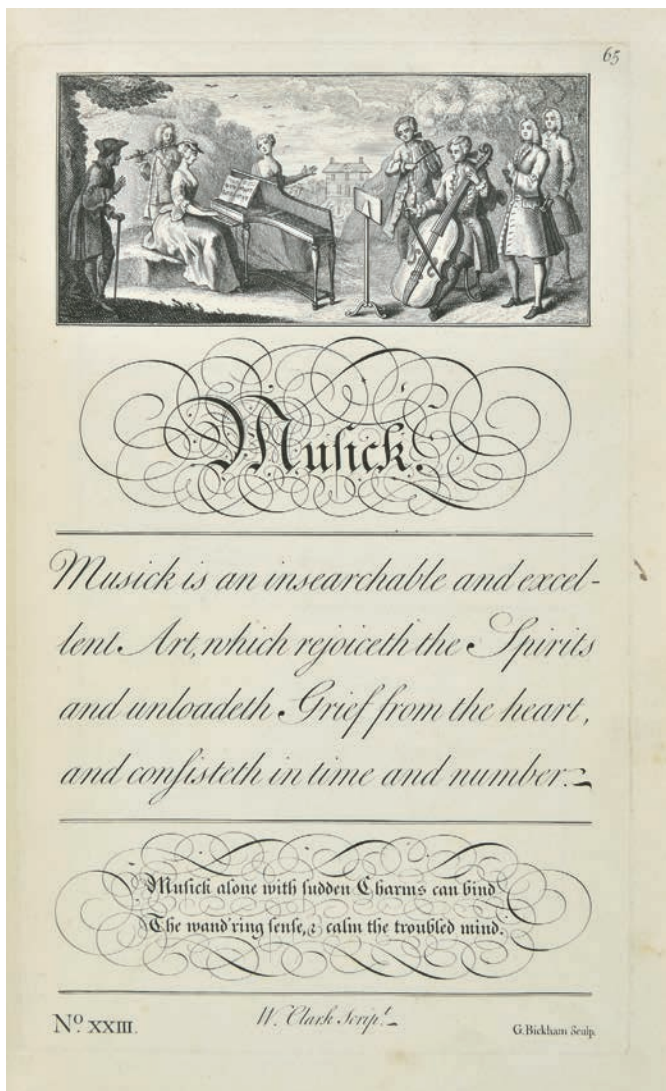 65
Muſick.
Musick is an insearchable and excel-
lent Art, which rejoiceth the Spirits
and unloadeth Grief from the heart,
and conſisteth in time and number.
Muſick alone with ſudden Charms can bind
The wand'ring ſenſe, & calm the troubled mind.
Nº. XXIII.
W. Clark Scrip.ᵗ
G. Bickham Sculp.